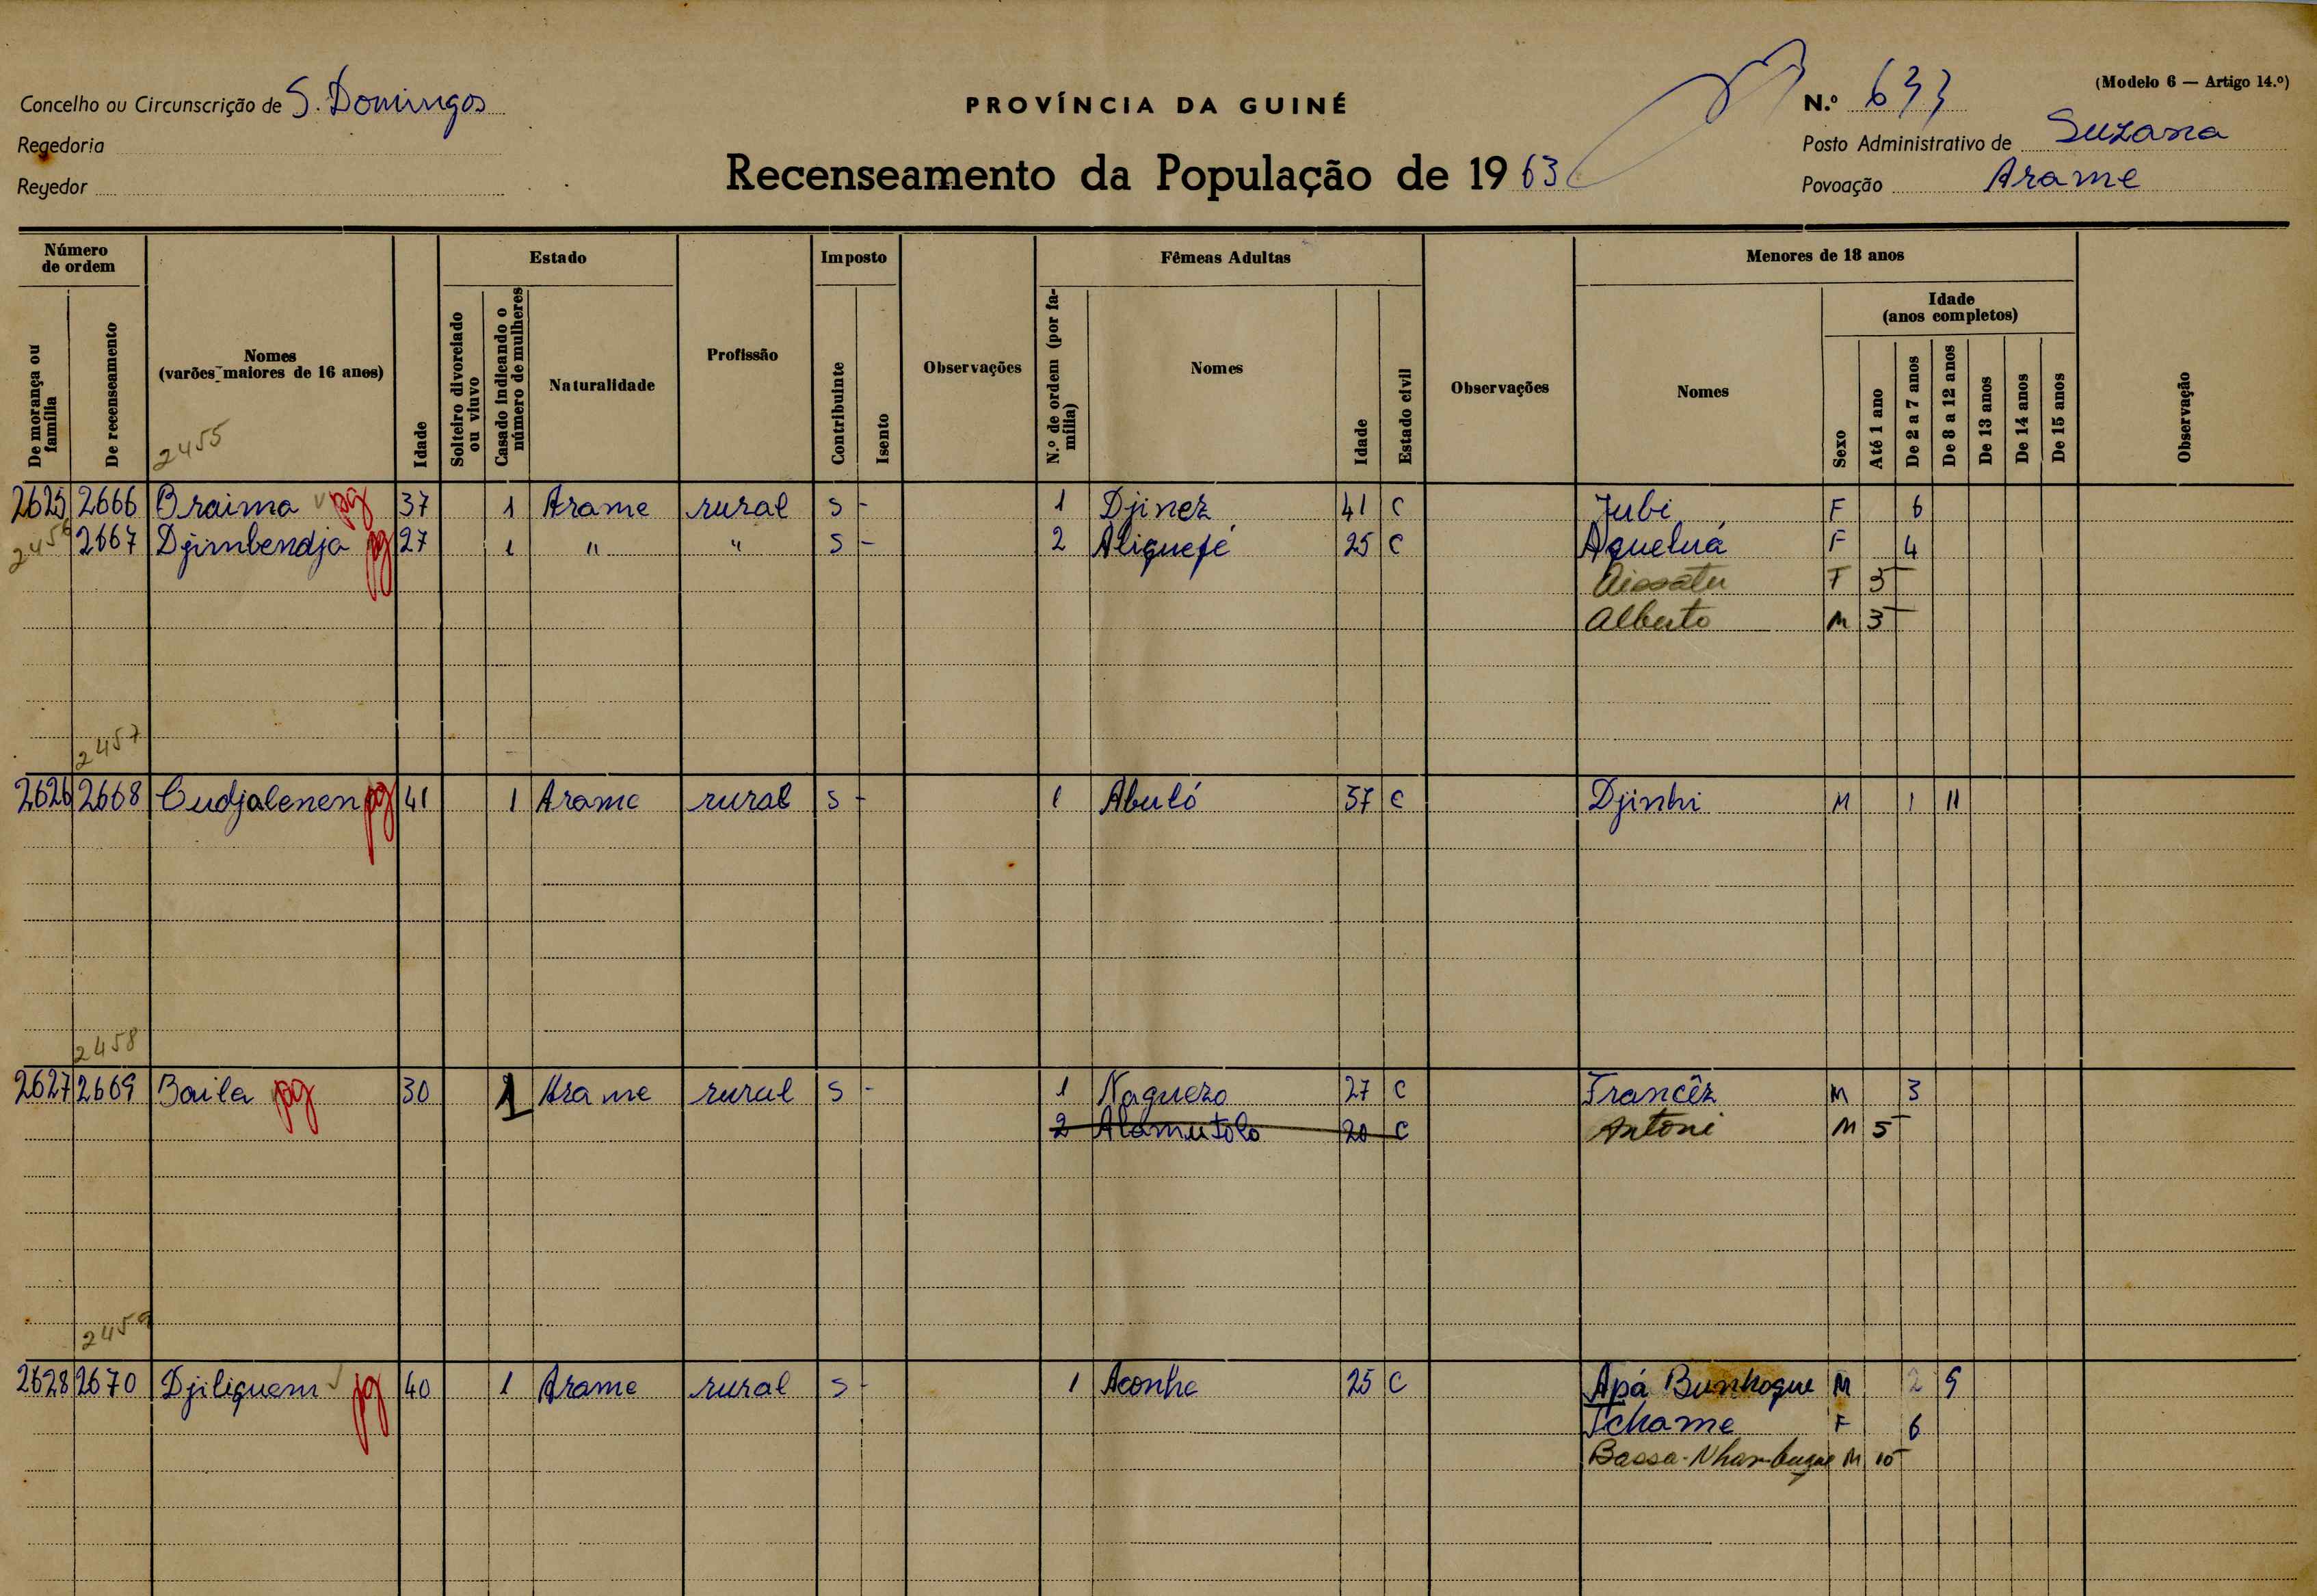 (Modelo 6 — Artigo 14.º)
Concelho ou Circunscrição de S. Domingos
PROVÍNCIA DA GUINÉ
N.º 633
Regedoria
Posto Administrativo de Suzana
Regedor
Recenseamento da População de 1963
Povoação Arame
Número de ordem
Estado
Imposto
Fêmeas Adultas
Menores de 18 anos
De morança ou família
De recenseamento
Nomes (varões maiores de 16 anos)
Idade
Solteiro divorciado ou viuvo
Casado indicando o número de mulheres
Naturalidade
Profissão
Contribuinte
Isento
Observações
N.º de ordem (por família)
Nomes
Idade
Estado civil
Observações
Nomes
Sexo
Idade (anos completos)
Até 1 ano
De 2 a 7 anos
De 8 a 12 anos
De 13 anos
De 14 anos
De 15 anos
Observação
2455
2625 2666 Braima pg 37 1 Arame rural S - 1 Djinez 41 C Jubi F 6
2456 2667 Djimbendja pg 27 1 " " S - 2 Aliquefé 25 C Aqueluá F 4
Aissatu F 5
Alberto M 3
2457
2626 2668 Cudjalenen pg 41 1 Arame rural S - 1 Abuló 37 C Djinhi M 1 11
2458
2627 2669 Baila pg 30 1 Arame rural S - 1 Naquezo 27 C Francêz M 3
2 Alamutolo 20 C Antoni M 5
2459
2628 2670 Djiliquem pg 40 1 Arame rural S - 1 Aconha 25 C Apá Bunhoque M 2 9
Tchame F 6
Bassa-Nhambuque M 10